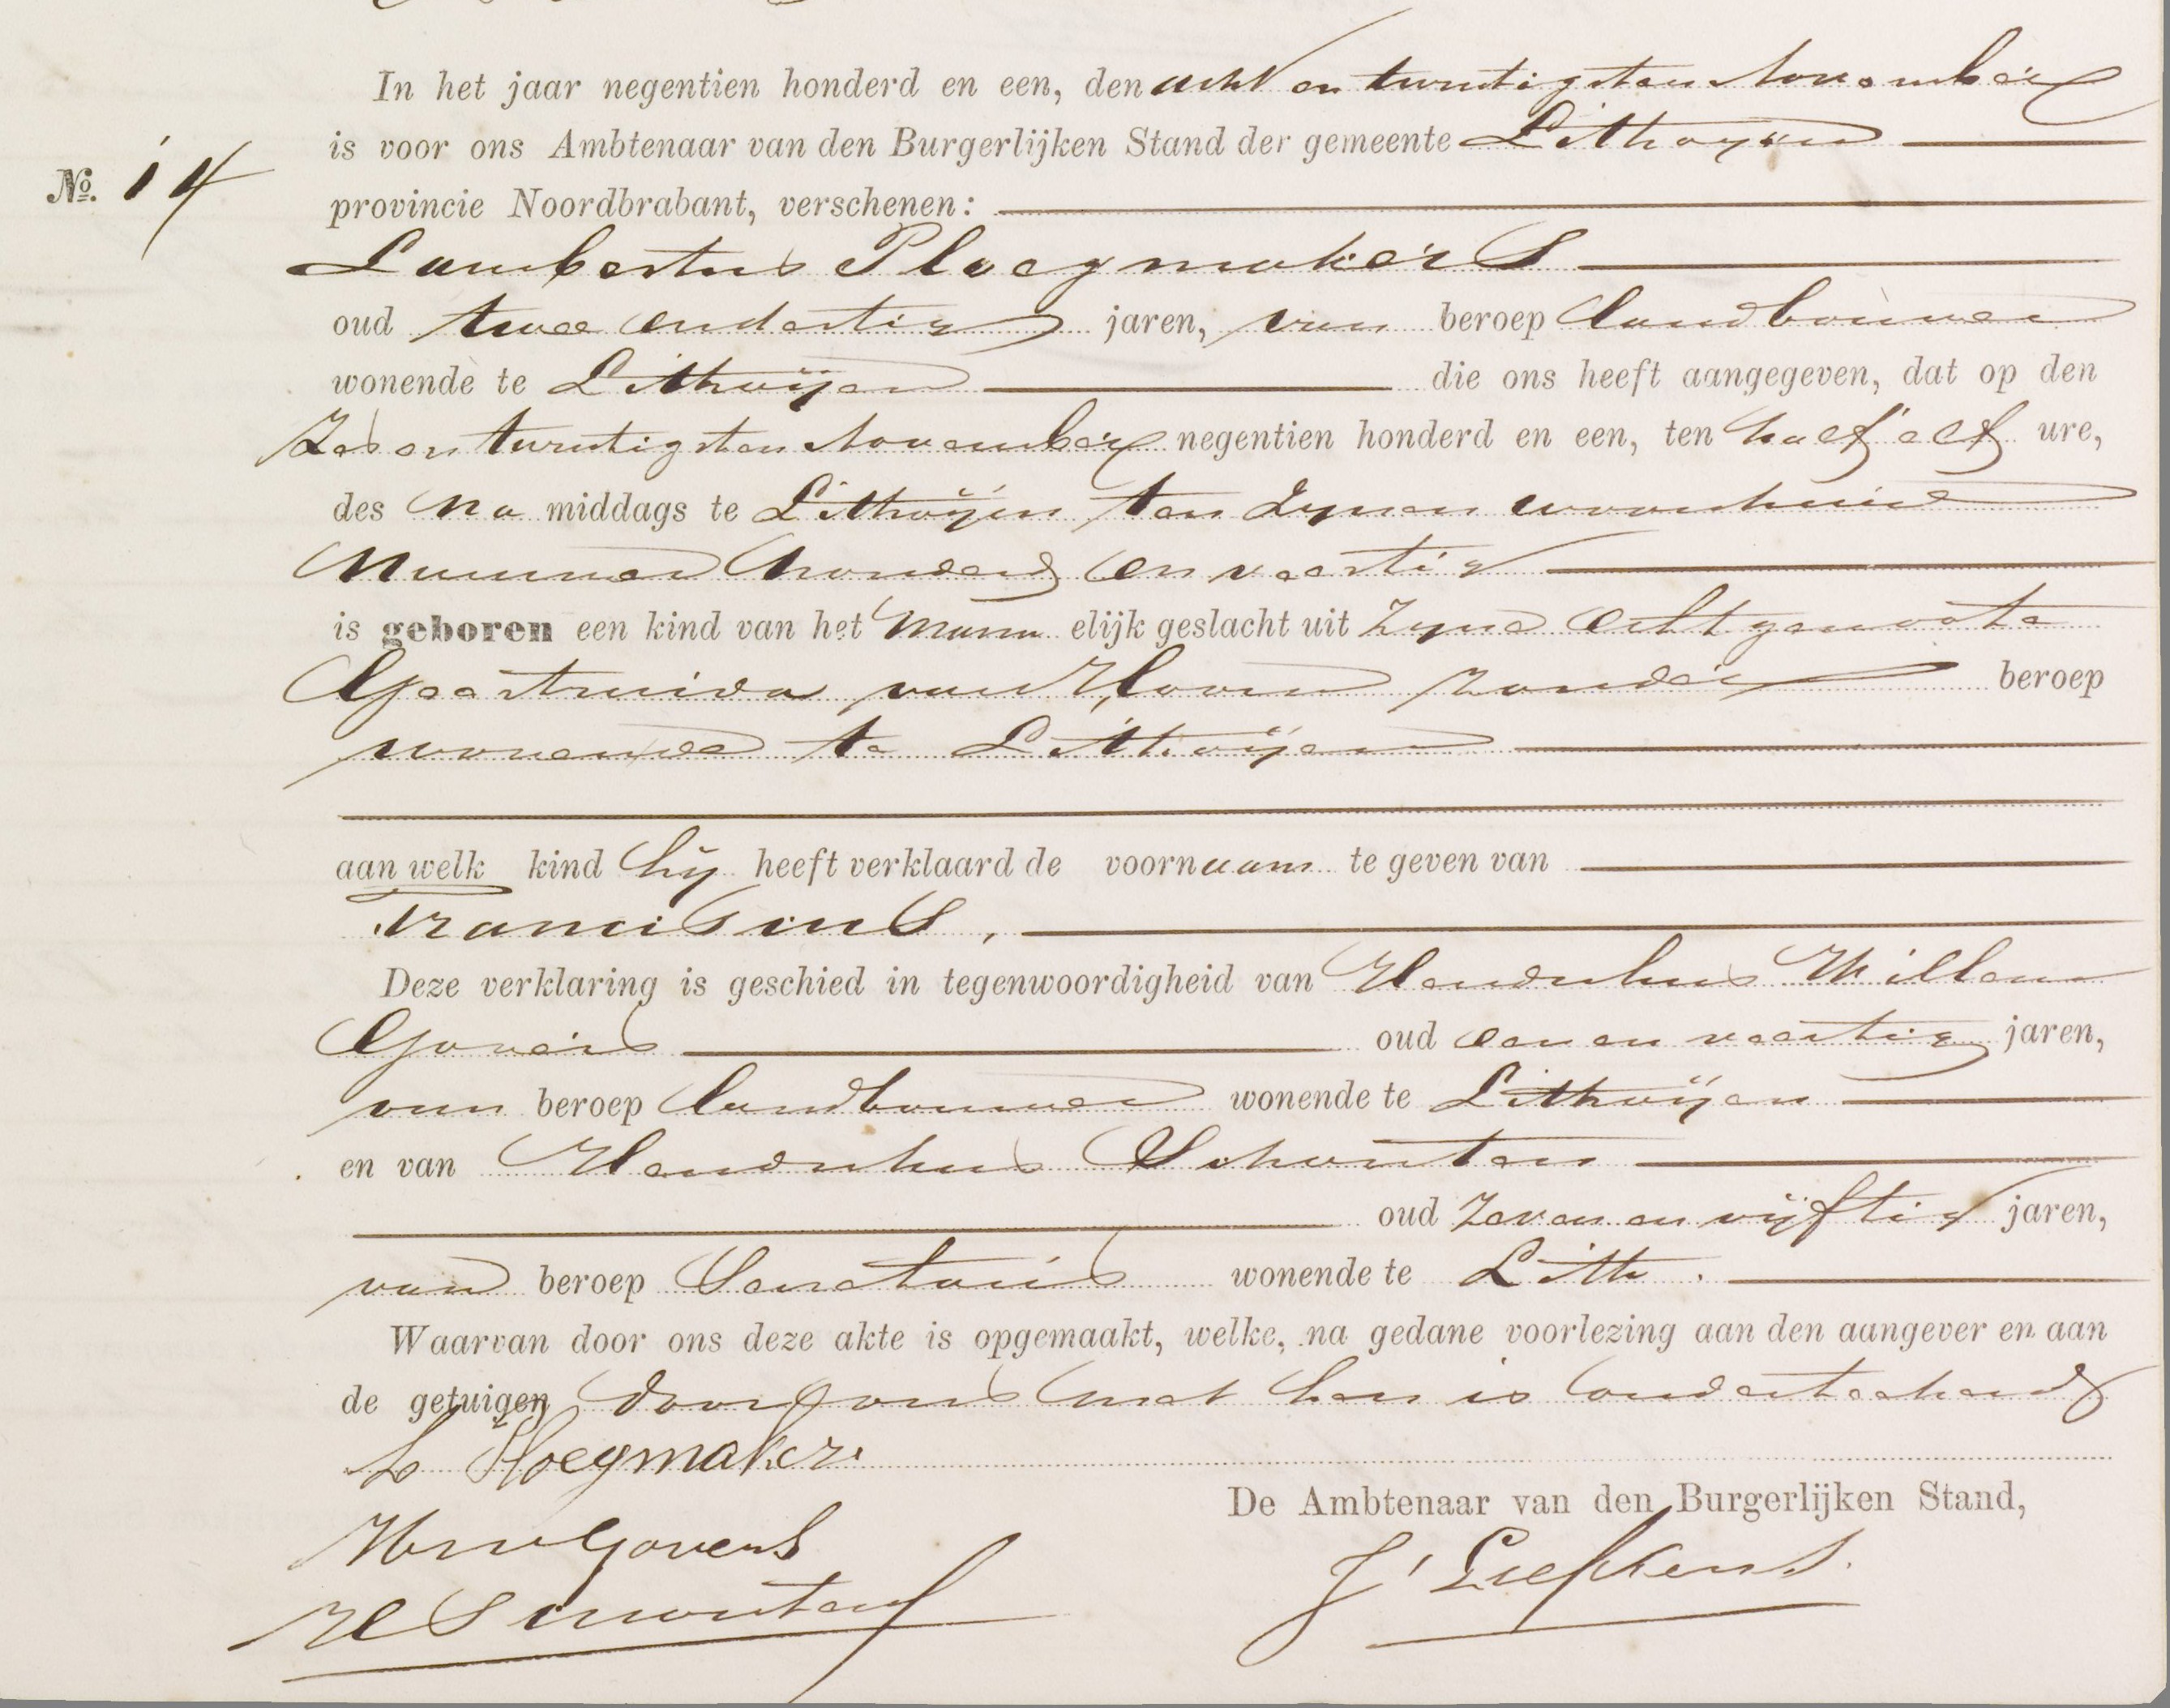 In het jaar negentien honderd en een, den acht en twintigsten November
is voor ons Ambtenaar van den Burgerlijken Stand der gemeente Lithoyen
No. 14
provincie Noordbrabant, verschenen:
Lambertus Ploegmakers
oud twee endertig jaren, van beroep landbouwer
wonende te Lithoijen die ons heeft aangegeven, dat op den
Zes en twintigsten November negentien honderd en een, ten half elf ure,
des na middags te Lithoijen ten Zynen woonhuize
Nummer honderd en veertig
is geboren een kind van het mann elijk geslacht uit Zyne Echtgenoote
Geertruida van Hoorn zonder beroep
wonende te Lithoijen
aan welk kind hij heeft verklaard de voornaam te geven van
Franciscus,
Deze verklaring is geschied in tegenwoordigheid van Hendrikus Willem
Govers oud een en veertig jaren,
van beroep landbouwer wonende te Lithoijen
en van Hendrikus Schouten
oud Zeven en vijftig jaren,
van beroep Secretaris wonende te Lith.
Waarvan door ons deze akte is opgemaakt, welke, na gedane voorlezing aan den aangever en aan
de getuigen door ons met hen is onderteekend
L Ploegmakers
De Ambtenaar van den Burgerlijken Stand,
HW Govers
H Schouten
J Liefkens.